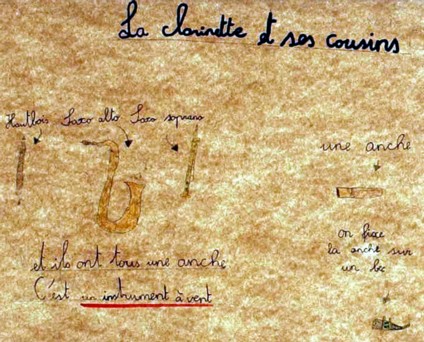 La clarinette et ses cousins
Hautbois Saxo alto Saxo soprano
une anche
et ils ont tous une anche
C'est un instrument à vent
on fixe
la anche sur
un bec